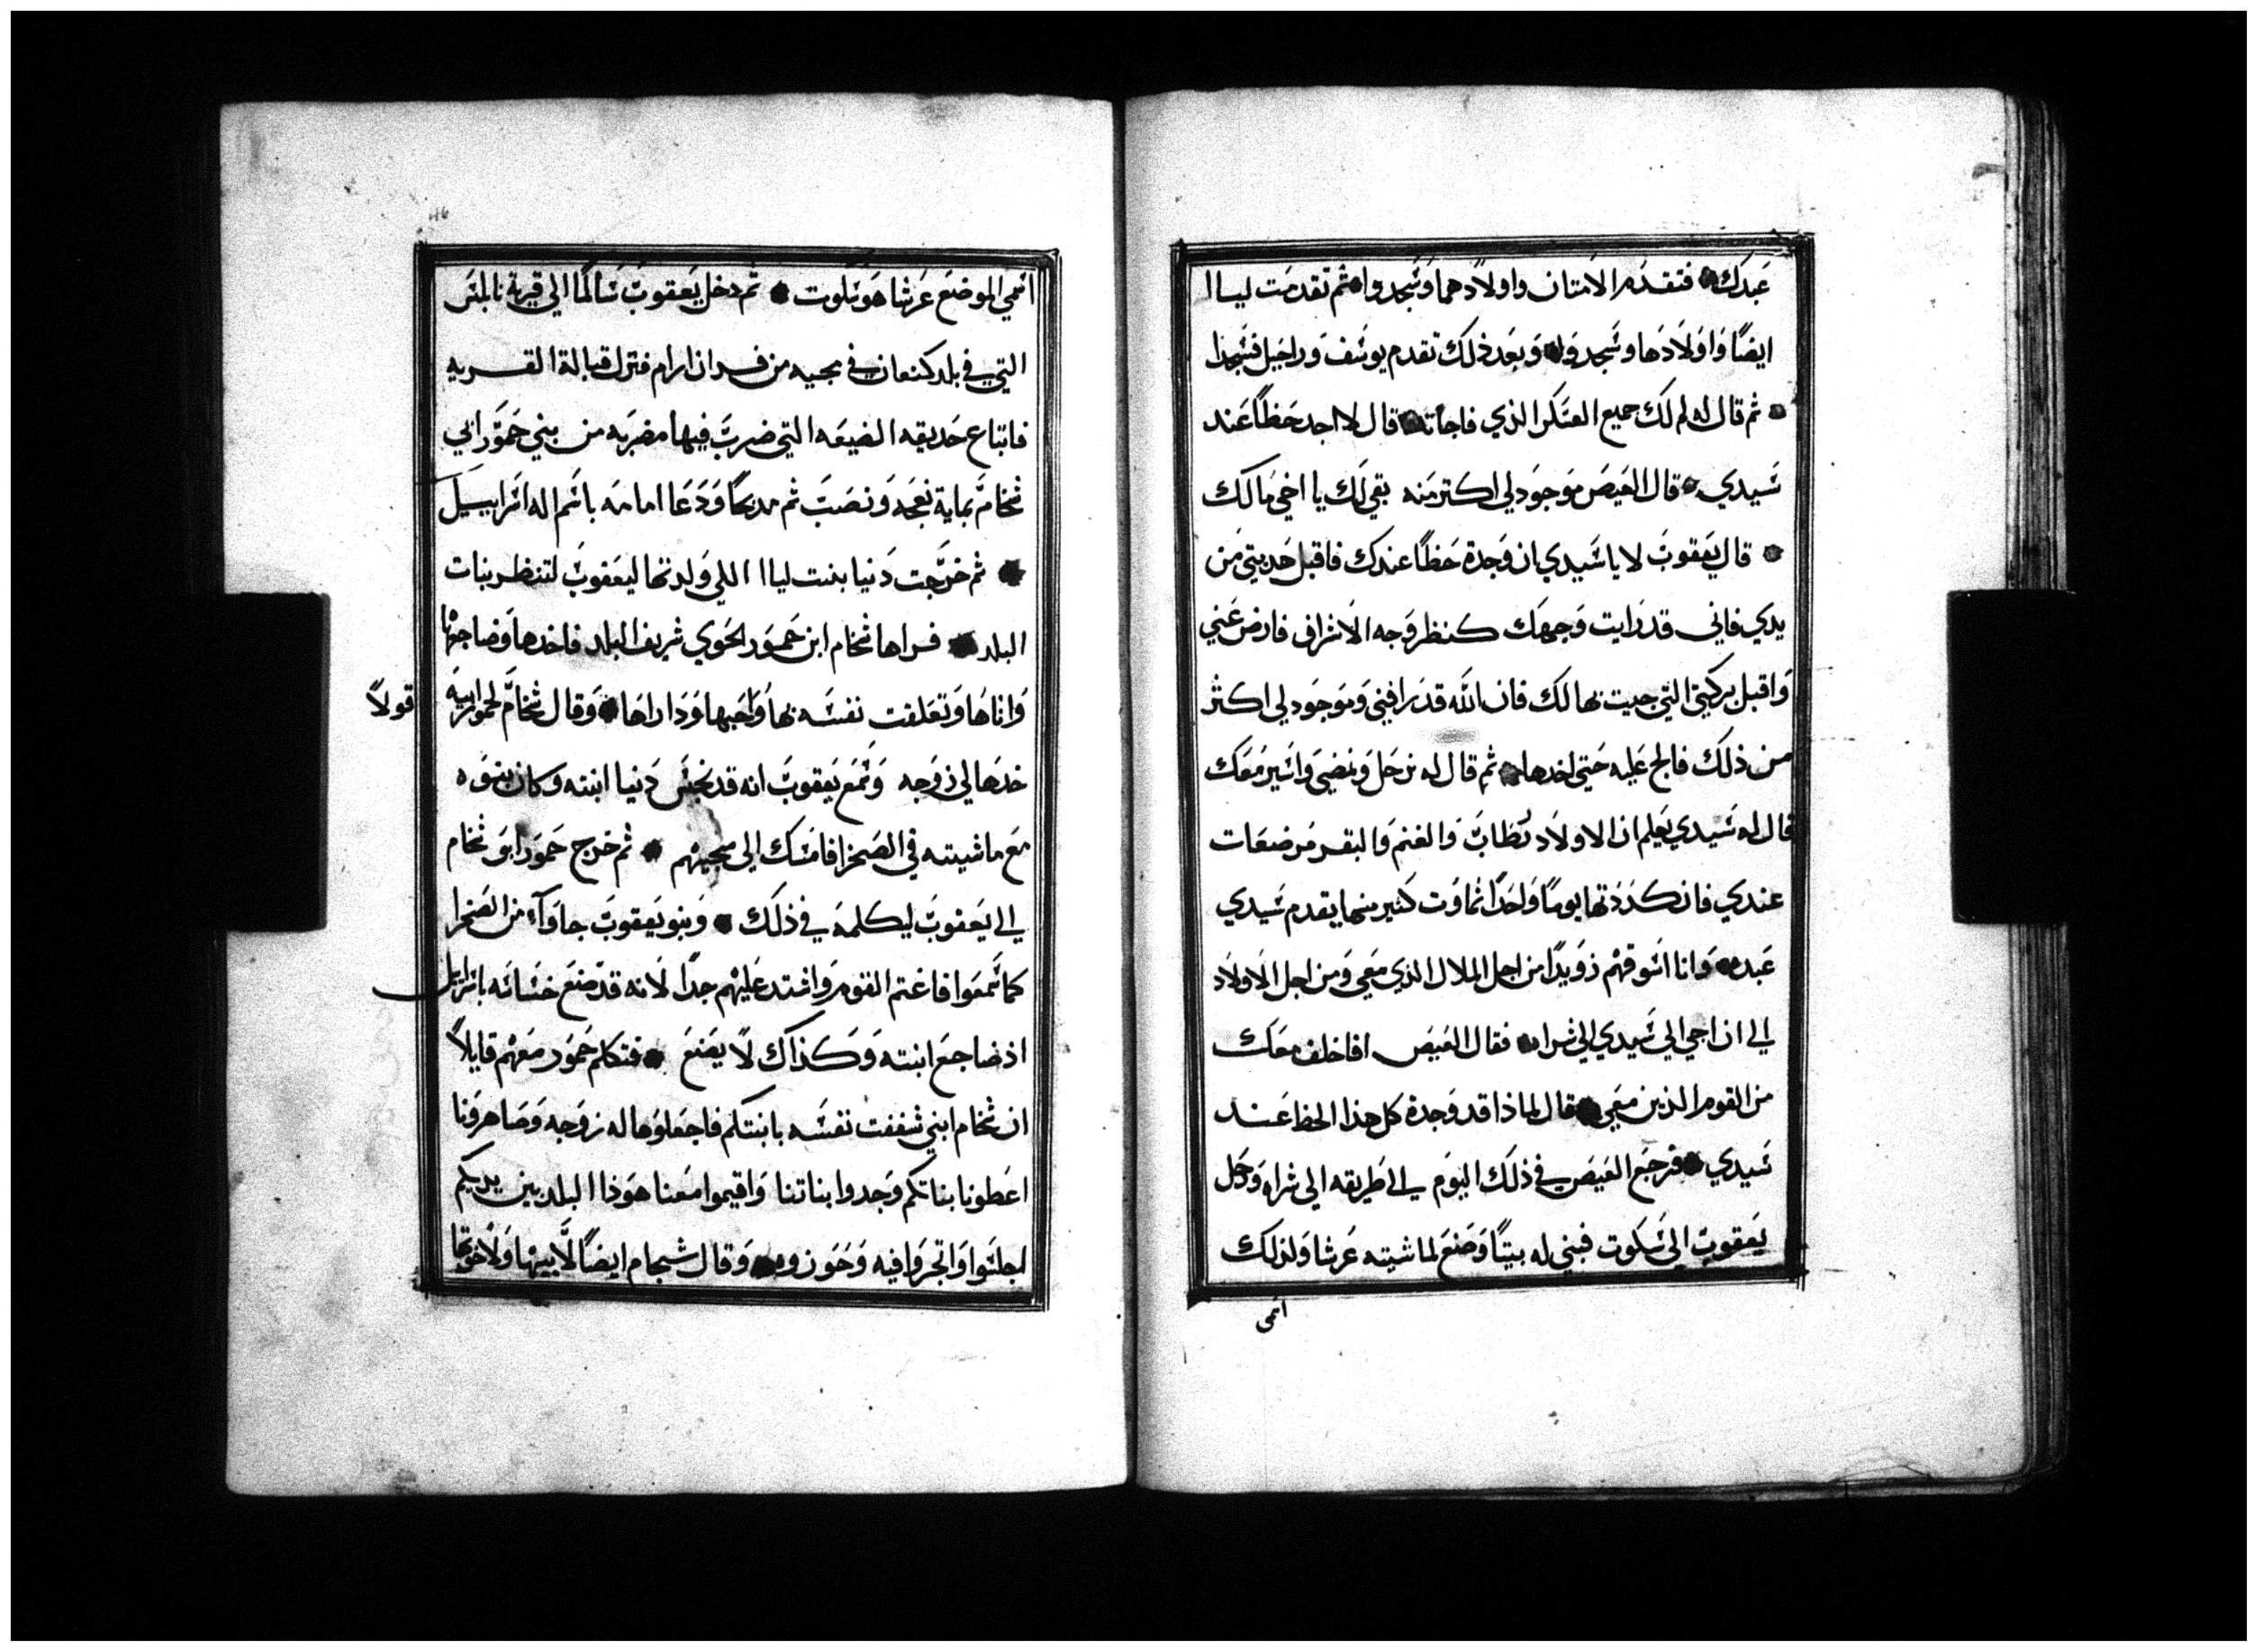 عبدك فتقدم الامتان واولادهما وسجدوا ثم تقدمت ليا
ايضًا واولادها وسجدوا وبعد ذلك تقدم يوسف وراحيل فسجدا
ثم قال له لم لك جميع العسكر الذي فاجأته قال لاجد حظًا عند
سيدي قال العيص موجود لي اكتر منه بقي لك يا اخي مالك
قال يعقوب لا يا سيدي ان وجدة حظًا عندك فاقبل هديتي من
يدي فاني قد رايت وجهك كنظر وجه الاشراف فارض عني
واقبل بركتي التي جيت بها لك فان الله قد رافني وموجود لي اكثر
من ذلك فالح عليه حتى اخدها ثم قال له نرحل ونمضي واسير معك
قال له سيدي يعلم ان الاولاد رطاب والغنم والبقر مرضعات
عندي فان كددتها يومًا واحدًا تماوت كثير منها يتقدم سيدي
عبده وانا اسوقهم رويدًا من اجل الملال الذي معي ومن اجل الاولاد
الي ان اجي الى سيدي الي شراه فقال العيص افاخلف معك
من القوم الذين معي قال لماذا قد وجدة كل هذا الحظ عند
سيدي فرجع العيص في ذلك اليوم الي طريقه الى شراه ورحل
يعقوب الى سكوت فبني له بيتًا وصنع لماشيته عرشا ولذلك
اسمى
اسمي الموضع عرشا هو سكوت ثم دخل يعقوب سالمًا الي قرية نابلس
التي في بلد كنعان في مجيه من فدان ارام فنزل قبالة القريه
فابتاع حديقه الضيعه التي ضرب فيها مضربه من بني حمور ابي
شخام بماية نعجه ونصب ثم مدبحًا ودعا امامه باسم اله اسراييل
ثم خرجت دنيا بنت ليا اللي ولدتها ليعقوب لتنظر بنات
البلد فراها شخام ابن حمور الحوي شريف البلد فاخدها وضاجعها
واناها وتعلقت نفسه بها واحبها وداراها وقال شخام لحمور ابيه
قولاً
خدها لي زوجه وسمع يعقوب انه قد نجس دنيا ابنته وكان بنوه
مع ماشيته في الصحرا فامسك الي مجيهم ثم خرج حمور ابو شخام
الي يعقوب ليكلمه في ذلك وبنو يعقوب جاوآ من الصحرا
كما سمعوا فاغتم القوم واشتد عليهم جدًا لانه قد صنع خساسه باسرايل
اذ ضاجع ابنته وكذاك لا يصنع فتكلم حمور معهم قايلاً
ان شخام ابني شففت نفسه بابنتكم فاجعلوها له زوجه وصاهرونا
اعطونا بناتكم وخدوا بناتنا واقيموا معنا هوذا البلد بين يديكم
اجلسوا واتجروا فيه وحوزوه وقال شخام ايضًا لابيها ولاخوتها